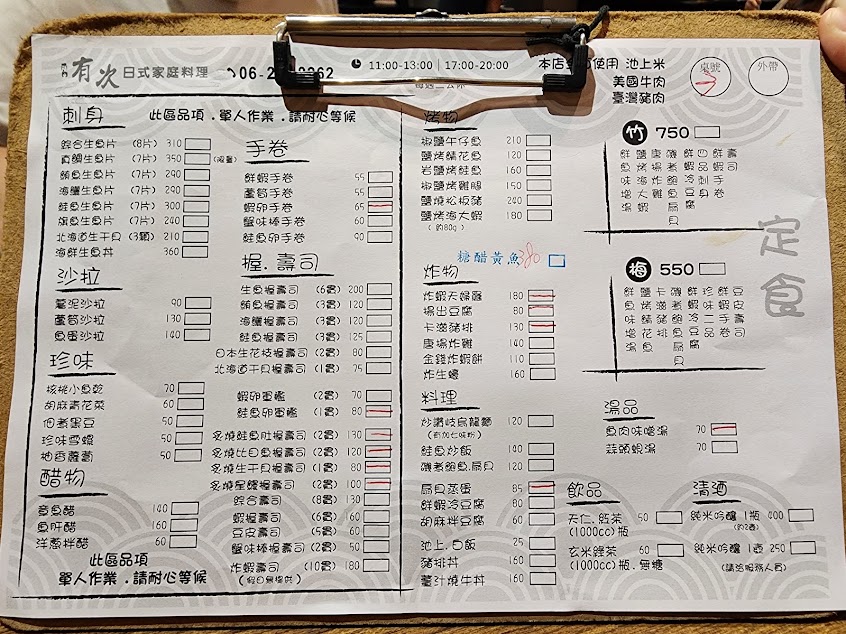 有次 日式家庭料理
11:00-13:00 | 17:00-20:00
使用 池上米
美國牛肉
臺灣豬肉
桌號
外帶
刺身 此區品項.單人作業.請耐心等候
綜合生魚片 (8片) 310
真鯛生魚片 (7片) 350
鮪魚生魚片 (7片) 290
海鱺生魚片 (7片) 290
鮭魚生魚片 (7片) 300
旗魚生魚片 (7片) 240
北海道生干貝 (3顆) 210
海鮮生魚丼 360
沙拉
薯泥沙拉 90
蘆筍沙拉 130
魚蛋沙拉 140
珍味
核桃小魚乾 70
胡麻青花菜 60
佃煮黑豆 50
珍味雪螺 50
柚香蘿蔔 50
醋物
章魚醋 140
魚肝醋 160
洋蔥拌醋 60
此區品項
單人作業.請耐心等候
手卷
鮮蝦手卷 55
蘆筍手卷 55
蝦卵手卷 65
蟹味棒手卷 60
鮭魚卵手卷 90
握.壽司
生魚握壽司 (6貫) 200
鮪魚握壽司 (3貫) 120
海鱺握壽司 (3貫) 120
鮭魚握壽司 (3貫) 125
日本生花枝握壽司 (2貫) 80
北海道干貝握壽司 (1貫) 75
蝦卵軍艦 (2貫) 70
鮭魚卵軍艦 (1貫) 80
炙燒鮭魚肚握壽司 (2貫) 130
炙燒比目魚握壽司 (2貫) 120
炙燒生干貝握壽司 (1貫) 80
炙燒星鰻握壽司 (2貫) 100
綜合壽司 (8貫) 130
蝦握壽司 (6貫) 160
豆皮壽司 (5貫) 50
蟹味棒握壽司 (2貫) 50
炸蝦壽司 (10貫) 180
(假日無提供)
烤物
椒鹽午仔魚 210
鹽烤鯖花魚 120
岩鹽烤鮭魚 160
椒鹽烤雞腿 150
鹽燒松板豬 240
鹽烤海大蝦 180
(約80g)
糖醋黃魚 380
炸物
炸蝦天婦羅 180
揚出豆腐 80
卡滋豬排 130
唐揚炸雞 140
金錢炸蝦餅 110
炸生蠔 160
料理
炒讚岐烏龍麵 120
鮭魚炒飯 140
磯煮鮑魚.扇貝 120
扇貝蒸蛋 85
鮮蝦冷豆腐 80
胡麻拌豆腐 60
池上.白飯 25
豬排丼 160
薑汁燒牛丼 160
竹 750
鮮魚味增湯
鹽烤海大蝦
唐揚炸雞
磯煮鮑魚.扇貝
鮮蝦冷豆腐
四品刺身
鮮蝦手卷
壽司
定食
梅 550
鮮魚味增湯
鹽烤鯖花魚
卡滋豬排
磯煮鮑魚.扇貝
鮮蝦冷豆腐
珍味二品
鮮蝦手卷
豆皮壽司
湯品
魚肉味噌湯 70
蒜頭蜆湯 70
飲品
天仁.綠茶 50
(1000cc)瓶
玄米綠茶 60
(1000cc)瓶.無糖
清酒
純米吟釀 1瓶 400
純米吟釀 1壺 250
(請洽服務人員)